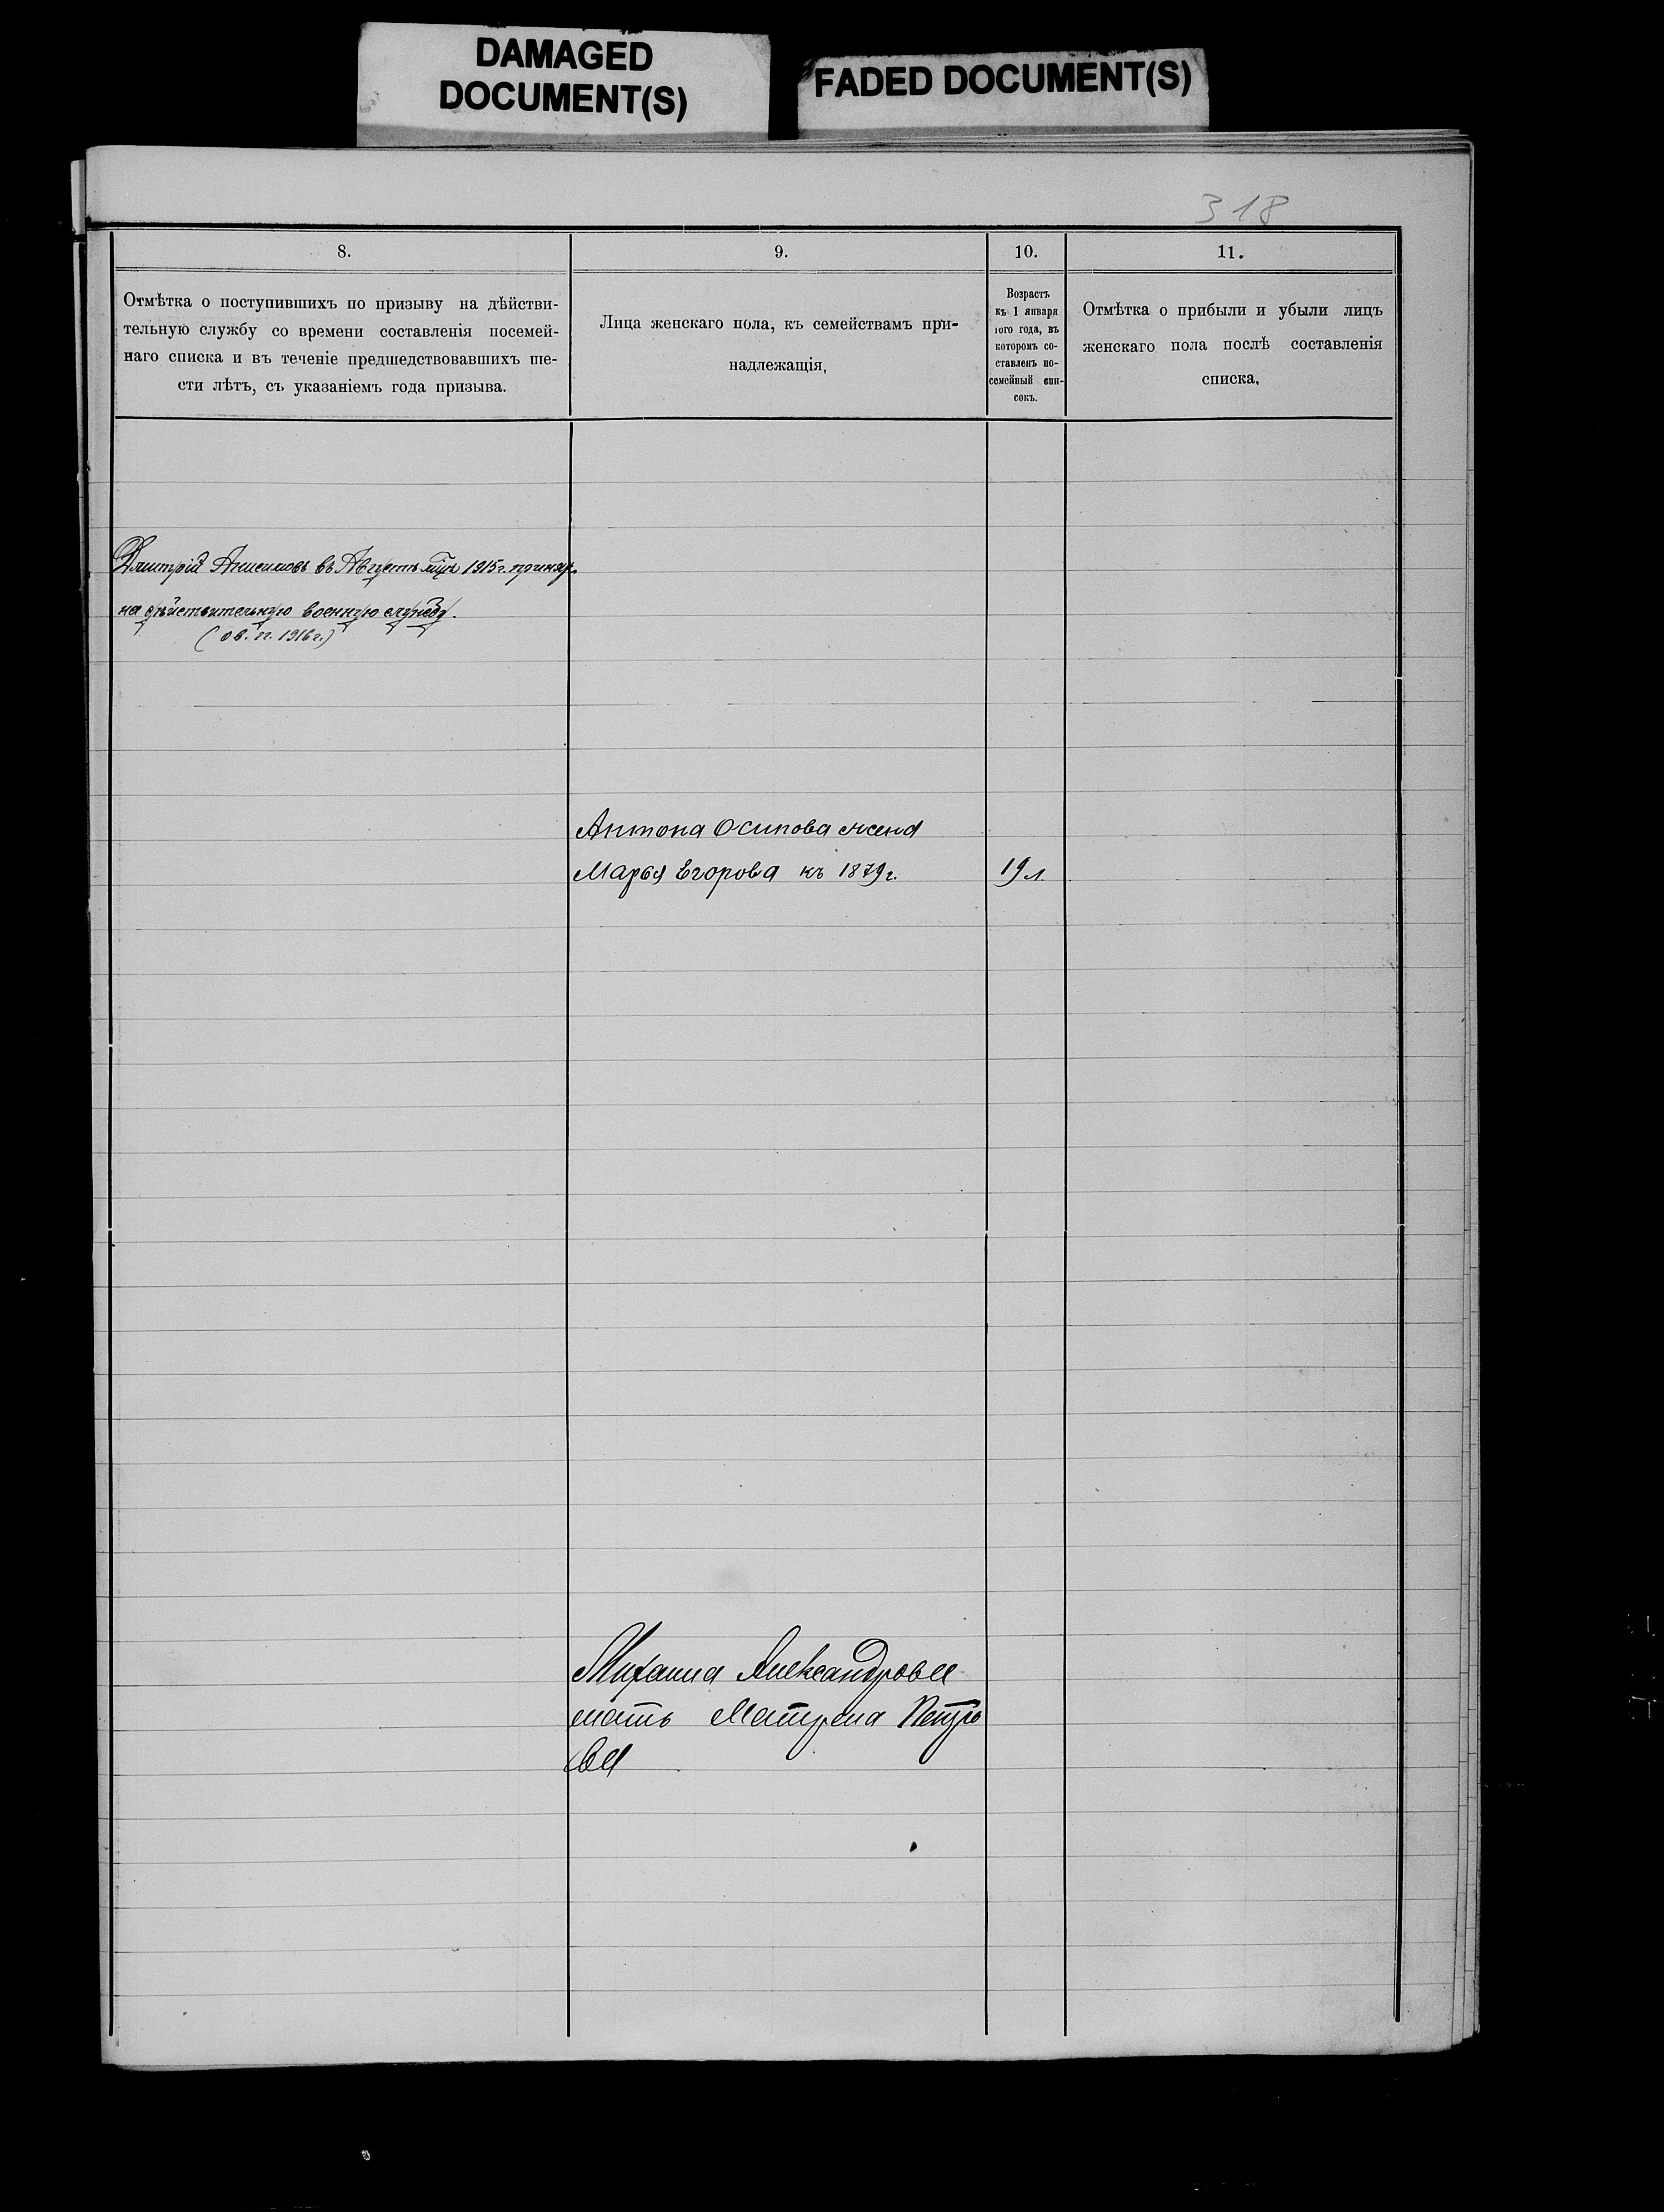 DAMAGED
DOCUMENT(S)
FADED DOCUMENT(S)
318
8.
Отмѣтка о поступившихъ по призыву на дѣйстви-
тельную службу со времени составленія посемей-
наго списка и въ теченіе предшедствовавшихъ ше-
сти лѣтъ, съ указаніемъ года призыва.
9.
Лица женскаго пола, къ семействамъ при-
надлежащія,
10.
Возрастъ
къ 1 января
1ого года, въ
которомъ со-
ставленъ по-
семейный спи-
сокъ.
11.
Отмѣтка о прибыли и убыли лицъ
женскаго пола послѣ составленія
списка,
Дмитрій Анисимовъ въ Августѣ мцѣ 1915г. принятъ
на дѣйствительную военную службу.
(ов. п. 1916г.)
Антона Осипова жена
Марья Егорова къ 1879г.
19 л.
Михаила Александрова
мать Матрена Петро
ва